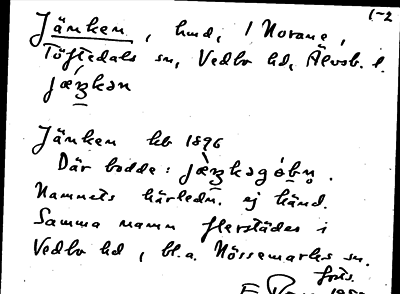 1-2
Jänken, hmd, i Norane,
Töftedals sn, Vedbo hd, Älvsb. l.
Jänken kb 1896
Där bodde:
Namnets härledn. ej känd.
Samma namn flerstädes i
Vedbo hd, bl.a. Nössemarks sn.
forts.